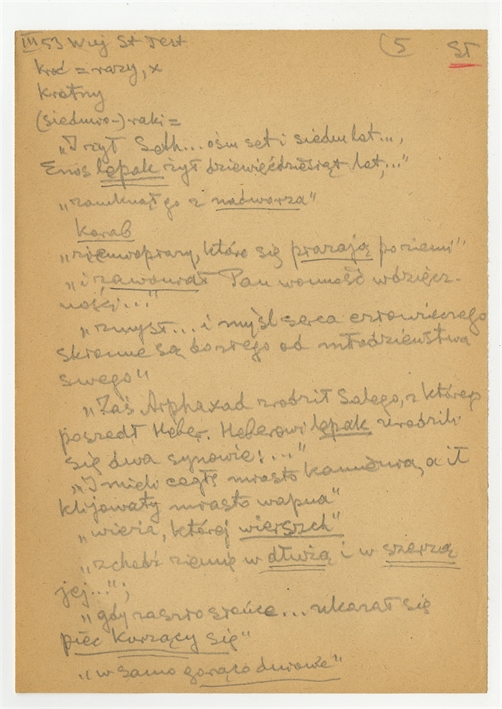 III 53 Wuj St Test (5 ST
kroć = razy, x
krotny
(siedmio-)raki =
„I żył Seth... ośm set i siedm lat...,
Enos lepak żył dziewięćdziesiąt lat,..."
„zamknął go z nadworza"
Korab
„ziemnopłazy, które się płazają po ziemi"
„i zawoniał Pan wonność wdzięcz-
ności..."
„zmysł... i myśl serca człowieczego
skłonne są do złego od młodzieństwa
swego"
„Zaś Arphaxad zrodził Salego, z którego
poszedł Heber. Heberowi lepak urodzili
się dwa synowie:..."
„I mieli cegłę miasto kamienia, a ił
klijowaty miasto wapna"
„wieża, której wierszch"
„zchodź ziemię w dłużą i w szerzą
jej...";
„gdy zaszło słońce... ukazał się
piec kurzący się"
„w samo gorąco dniowe"